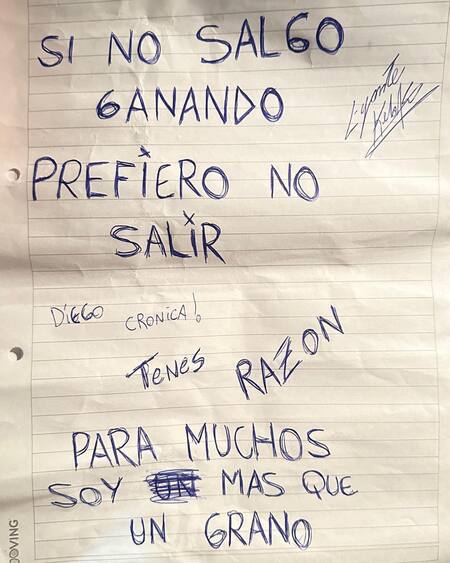 SI NO SALGO
GANANDO
PREFIERO NO
SALIR
DIEGO CRONICA!
TENÉS RAZON
PARA MUCHOS
SOY UN MAS QUE
UN GRANO